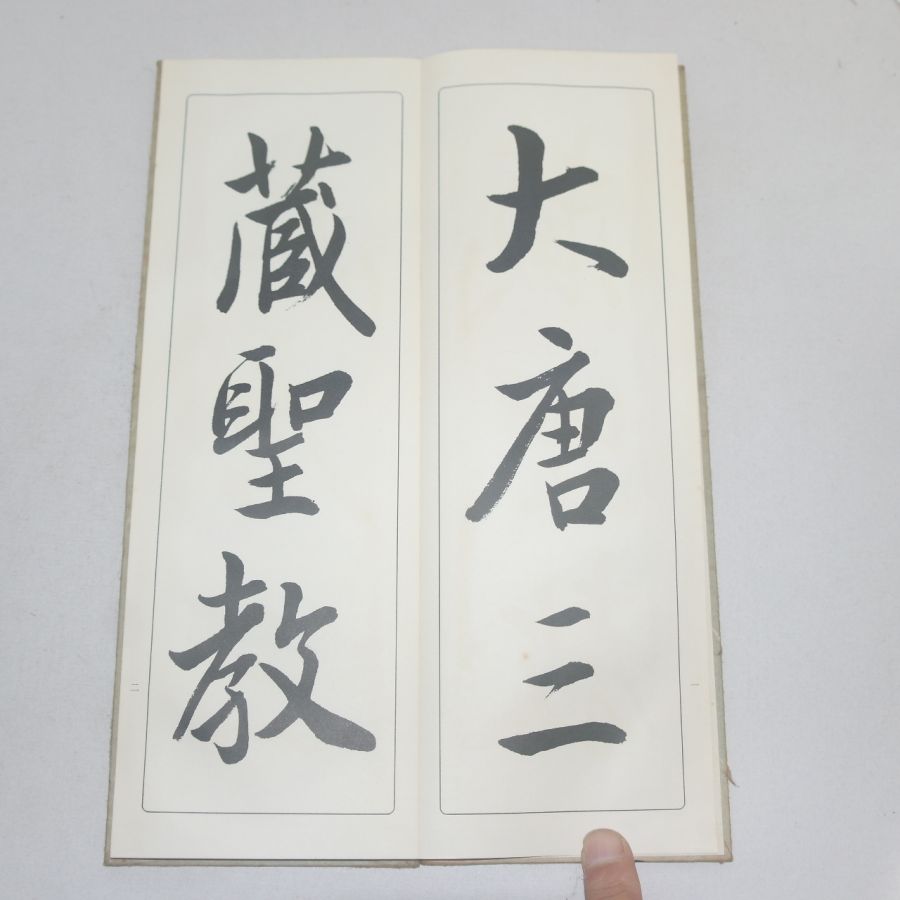 大唐三
一
藏聖教
二